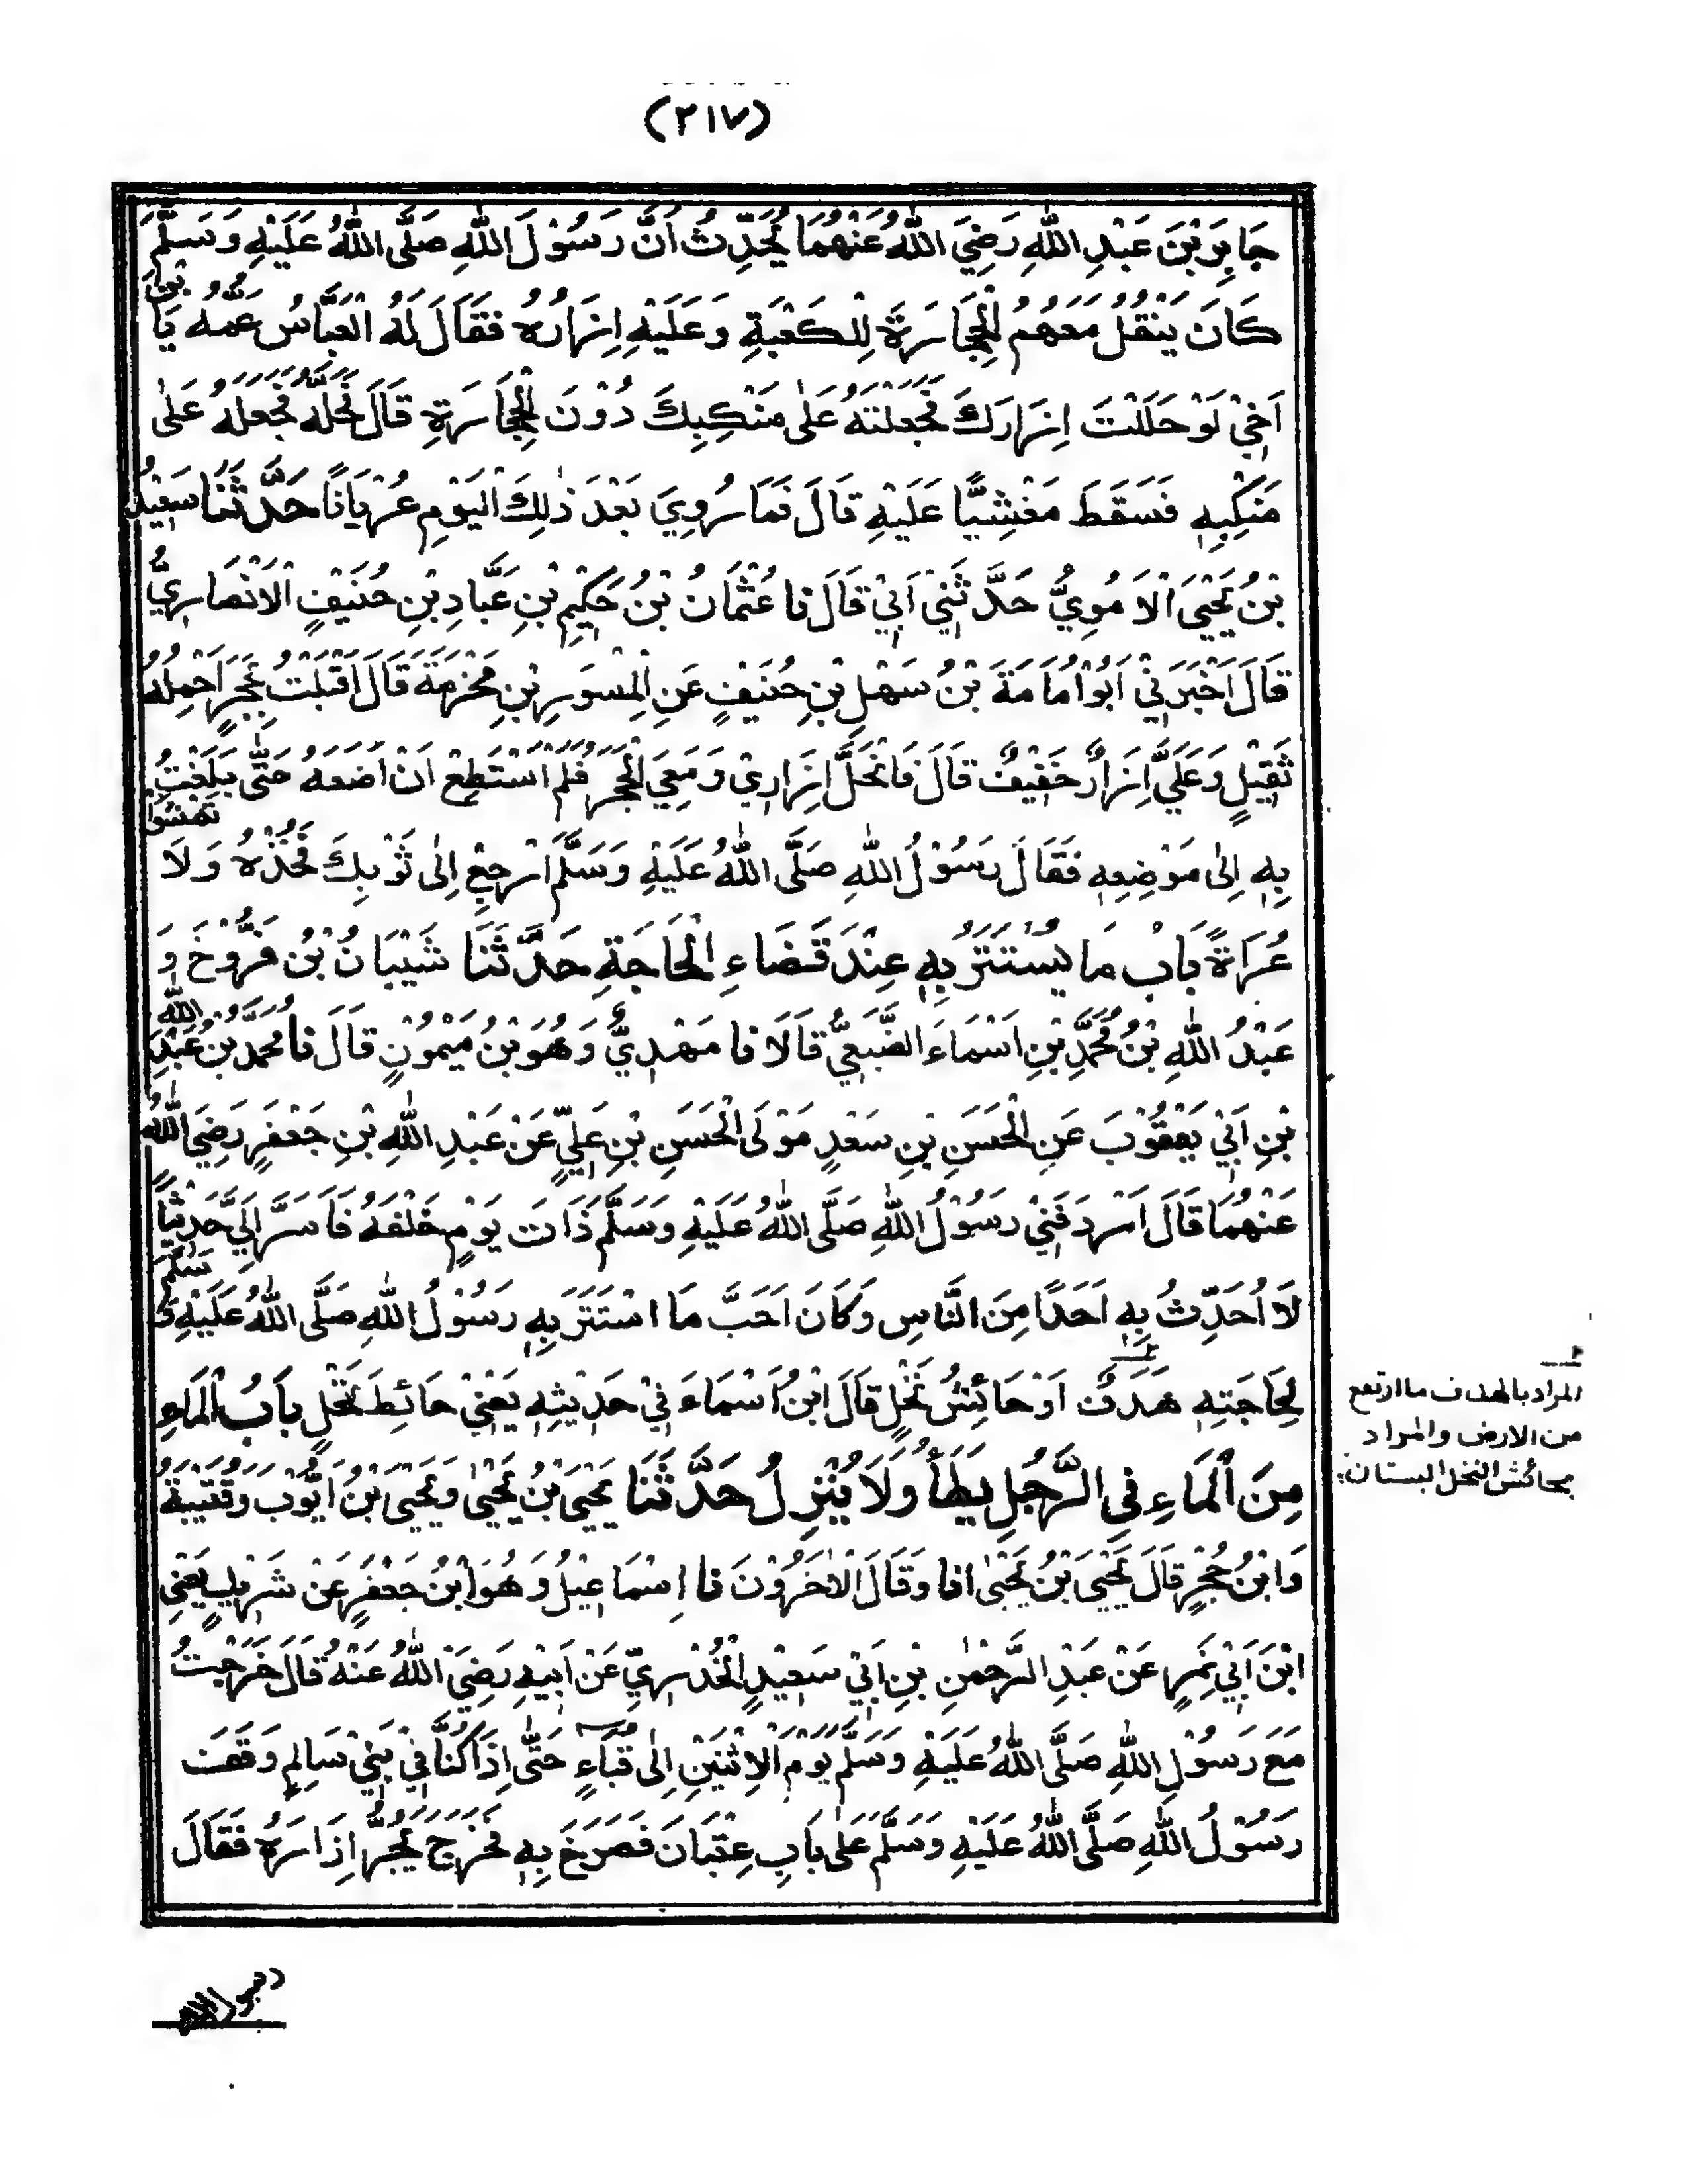 (٣١٧)
جَابِرَ بْنَ عَبْدِ اللّٰهِ رَضِيَ اللّٰهُ عَنْهُمَا يُحَدِّثُ اَنَّ رَسُوْلَ اللّٰهِ صَلَّى اللّٰهُ عَلَيْهِ وَسَلَّمَ
كَانَ يَنْقُلُ مَعَهُمُ الْحِجَارَةَ لِلْكَعْبَةِ وَعَلَيْهِ اِزَارُهُ فَقَالَ لَهُ الْعَبَّاسُ عَمُّهُ يَا بْنَ
اَخِيْ لَوْ حَلَلْتَ اِزَارَكَ فَجَعَلْتَهُ عَلٰى مَنْكِبِكَ دُوْنَ الْحِجَارَةِ قَالَ فَحَلَّهُ فَجَعَلَهُ عَلٰى
مَنْكِبِهٖ فَسَقَطَ مَغْشِيًّا عَلَيْهِ قَالَ فَمَا رُوِيَ بَعْدَ ذٰلِكَ الْيَوْمِ عُرْيَانًا حَدَّثَنَا سَعِيْدُ
بْنُ يَحْيَى الْاُمَوِيُّ حَدَّثَنِيْ اَبِيْ قَالَ نا عُثْمَانُ بْنُ حَكِيْمِ بْنِ عَبَّادِ بْنِ حُنَيْفٍ الْاَنْصَارِيُّ
قَالَ اَخْبَرَنِيْ اَبُوْ اُمَامَةَ بْنُ سَهْلِ بْنِ حُنَيْفٍ عَنِ الْمِسْوَرِ بْنِ مَخْرَمَةَ قَالَ اَقْبَلْتُ بِحَجَرٍ اَحْمِلُهُ
ثَقِيْلٍ وَعَلَيَّ اِزَارٌ خَفِيْفٌ قَالَ فَانْحَلَّ اِزَارِيْ وَمَعِيَ الْحَجَرُ فَلَمْ اَسْتَطِعْ اَنْ اَضَعَهُ حَتّٰى بَلَغْتُ
بِهٖ اِلٰى مَوْضِعِهٖ فَقَالَ رَسُوْلُ اللّٰهِ صَلَّى اللّٰهُ عَلَيْهِ وَسَلَّمَ ارْجِعْ اِلٰى ثَوْبِكَ فَخُذْهُ وَلَا تَمْشُوْا
عُرَاةً بَابُ مَا يُسْتَتَرُ بِهٖ عِنْدَ قَضَاءِ الْحَاجَةِ حَدَّثَنَا شَيْبَانُ بْنُ فَرُّوْخَ وَ
عَبْدُ اللّٰهِ بْنُ مُحَمَّدِ بْنِ اَسْمَاءَ الضُّبَعِيُّ قَالَا نا مَهْدِيٌّ وَهُوَ بْنُ مَيْمُوْنٍ قَالَ نا مُحَمَّدُ بْنُ عَبْدِ اللّٰهِ
بْنِ اَبِيْ يَعْقُوْبَ عَنِ الْحَسَنِ بْنِ سَعْدٍ مَوْلَى الْحَسَنِ بْنِ عَلِيٍّ عَنْ عَبْدِ اللّٰهِ بْنِ جَعْفَرٍ رَضِيَ اللّٰهُ
عَنْهُمَا قَالَ اَرْدَفَنِيْ رَسُوْلُ اللّٰهِ صَلَّى اللّٰهُ عَلَيْهِ وَسَلَّمَ ذَاتَ يَوْمٍ خَلْفَهُ فَاَسَرَّ اِلَيَّ حَدِيْثًا
لَا اُحَدِّثُ بِهٖ اَحَدًا مِنَ النَّاسِ وَكَانَ اَحَبَّ مَا اسْتَتَرَ بِهٖ رَسُوْلُ اللّٰهِ صَلَّى اللّٰهُ عَلَيْهِ وَسَلَّمَ
لِحَاجَتِهٖ هَدَفٌ اَوْ حَائِشُ نَخْلٍ قَالَ ابْنُ اَسْمَاءَ فِيْ حَدِيْثِهٖ يَعْنِيْ حَائِطَ نَخْلٍ بَابُ الْمَاءِ
مِنَ الْمَاءِ فِي الرَّجُلِ يَطَأُ وَلَا يُنْزِلُ حَدَّثَنَا يَحْيَى بْنُ يَحْيٰى وَيَحْيَى بْنُ اَيُّوْبَ وَقُتَيْبَةُ
وَابْنُ حُجْرٍ قَالَ يَحْيَى بْنُ يَحْيٰى انا وَقَالَ الْاٰخَرُوْنَ نا اِسْمَاعِيْلُ وَهُوَ ابْنُ جَعْفَرٍ عَنْ شَرِيْكٍ يَعْنِي
ابْنَ اَبِيْ نَمِرٍ عَنْ عَبْدِ الرَّحْمٰنِ بْنِ اَبِيْ سَعِيْدٍ الْخُدْرِيِّ عَنْ اَبِيْهِ رَضِيَ اللّٰهُ عَنْهُ قَالَ خَرَجْتُ
مَعَ رَسُوْلِ اللّٰهِ صَلَّى اللّٰهُ عَلَيْهِ وَسَلَّمَ يَوْمَ الْاِثْنَيْنِ اِلٰى قُبَاءٍ حَتّٰى اِذَا كُنَّا فِيْ بَنِيْ سَالِمٍ وَقَفَ
رَسُوْلُ اللّٰهِ صَلَّى اللّٰهُ عَلَيْهِ وَسَلَّمَ عَلٰى بَابِ عِتْبَانَ فَصَرَخَ بِهٖ فَخَرَجَ يَجُرُّ اِزَارَهُ فَقَالَ
المراد بالهدف ما ارتفع
من الارض والمراد
بحائش النخل البستان